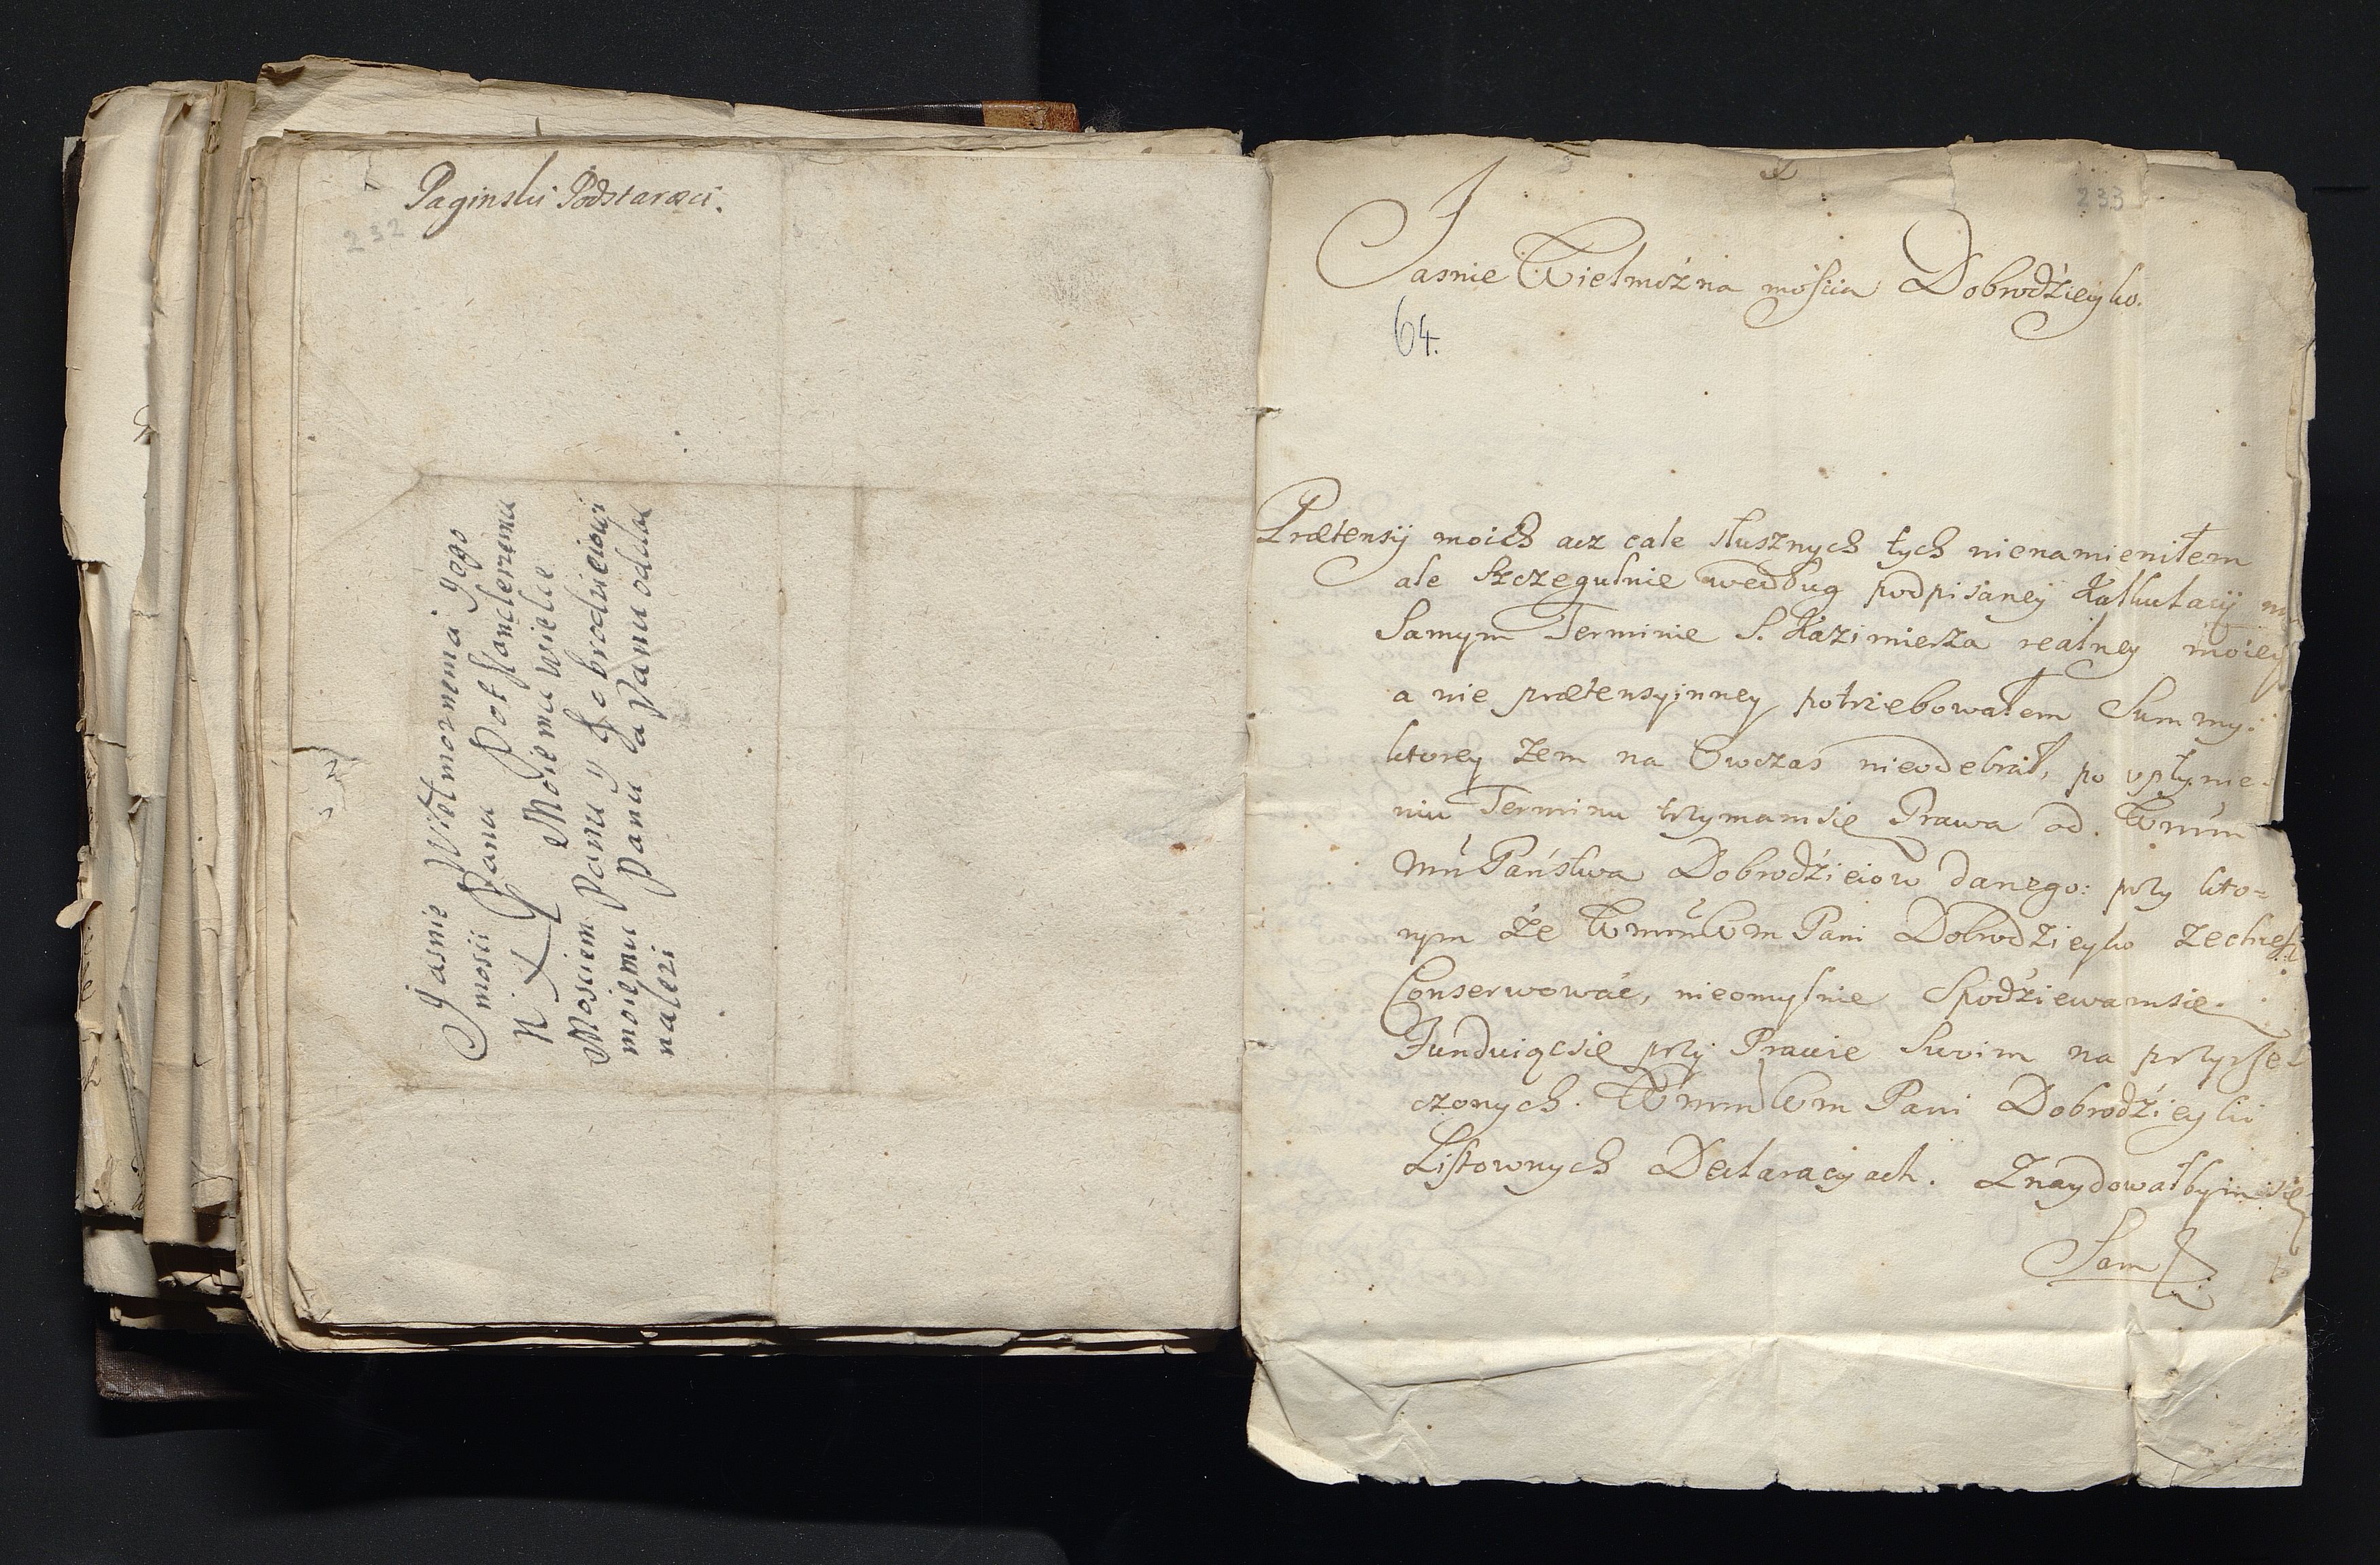 Paginski Podstarosci.
232
Jasnie Wielmoznemu Jego
mosci Panu Potskarlemu
N X Moiemu wielce
Mosciem Panu y Dobrodzieiowi
moiemu Panu a Panu oddac
nalezi
233
Jasnie Wielmożna mościa Dobrodźieyko.
64.
Prætensÿ moich acz cale słusznych tych nienamieniłem
ale Szczegulnie według podpisaney Kalkulacÿ na
Samym Terminie S. Kazimierza realney moiey
a nie prætensyinney potrzebowałem Summy:
ktorey żem na Owczas nieodebrał, po vpłynie-
niu Terminu trzymamsię Prawa od. Wmm
Mm Państwa Dobrodźieiow danego: przy kto=
rym że Wmm Wm Pani Dobrodzieyko zechcesz
Conserwować, nieomylnie Spodźiewamsie.
Funduiącsię przy Prawie Swoim na przyrze-
czonych. Wmm Wm Pani Dobrodźieyki
Listownych Declaracyach. Znaydowałbym się
Sam